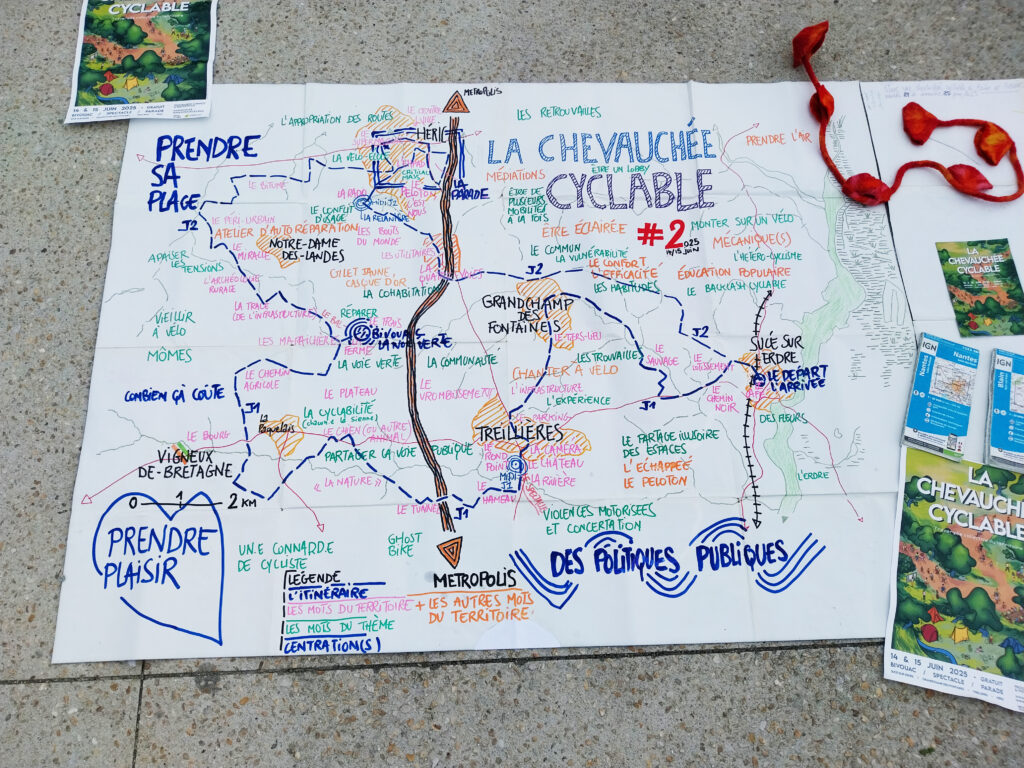 CYCLABLE
14 & 15 JUIN 2025 - GRATUIT
BIVOUAC / SPECTACLE / PARADE
METROPOLIS
L'APPROPRIATION DES ROUTES
LE CENTRE
VILLE
HÉRIC
LES RETROUVAILLES
PRENDRE
SA
PLAGE
LA VÉLO-ÉCOLE
CRITICAL
MASS
LA
PARADE
LA CHEVAUCHÉE
ÊTRE UN LOBBY
CYCLABLE
#2
025
14/15 JUIN
PRENDRE L'AIR
MÉDIATIONS
ÊTRE DE
PLUSIEURS
MOBILITÉS
À LA FOIS
LE BITUME
J2
MIDI J2
LE CONFLIT
D'USAGE
LE PÉRI-URBAIN
ATELIER D'AUTORÉPARATION
NOTRE-DAME
DES-LANDES
LE
MIRACLE
LES BOUTS
DU MONDE
LES UTILITAIRES
ÊTRE ÉCLAIRÉE
MONTER SUR UN VÉLO
MÉCANIQUE(S)
L'HÉTÉRO-CYCLISME
LE COMMUN
LA VULNÉRABILITÉ
LE CONFORT
L'EFFICACITÉ
LES HABITUDES
ÉDUCATION POPULAIRE
LE BACKLASH CYCLABLE
APAISER
LES
TENSIONS
L'ARCHÉOLOGIE
RURALE
GILET JAUNE,
CASQUE D'OR
LA COHABITATION
J2
LA TRACE
(DE L'INFRASTRUCTURE)
GRANDCHAMP
DES
FONTAINES
VIEILLIR
À VÉLO
RÉPARER
BIVOUAC
LA NOË VERTE
LES MARAÎCHERS
FERME
LA VOIE VERTE
LE TIERS-LIEU
J2
SUCÉ SUR
ERDRE
MÔMES
LA COMMUNAUTÉ
LES TROUVAILLES
LE
SAUVAGE
LE
LOTISSEMENT
LE DÉPART
L'ARRIVÉE
CHANTER À VÉLO
L'INFRASTRUCTURE
LE CHEMIN
AGRICOLE
LE PLATEAU
LE
VROMBISSEMENT
COMBIEN ÇA COÛTE
J1
L'EXPÉRIENCE
J1
LE CHEMIN
NOIR
DES FLEURS
LA CYCLABILITÉ
(chacun·e la sienne)
LE PARKING
LE BOURG
LA
Paquelais
LE CHIEN (OU AUTRE)
ANIMAL
TREILLIÈRES
VIGNEUX
DE-BRETAGNE
PARTAGER LA VOIE PUBLIQUE
LE
ROND
POINT
LA CAMÉRA
LE CHÂTEAU
LA RIVIÈRE
MIDI
J1
LE PARTAGE ILLUSOIRE
DES ESPACES
L'ÉCHAPPÉE
LE PELOTON
« LA NATURE »
LE
HAMEAU
L'ERDRE
0 1 2 KM
LE TUNNEL
J1
VIOLENCES MOTORISÉES
ET CONCERTATION
PRENDRE
PLAISIR
UN·E CONNARD·E
DE CYCLISTE
GHOST
BIKE
DES POLITIQUES PUBLIQUES
METROPOLIS
LÉGENDE
L'ITINÉRAIRE
LES MOTS DU TERRITOIRE + LES AUTRES MOTS
DU TERRITOIRE
LES MOTS DU THÈME
CENTRATION(S)
LA
CHEVAUCHÉE
CYCLABLE
IGN
Nantes
IGN
Blain
LA
CHEVAUCHÉE
CYCLABLE
14 & 15 JUIN 2025 - GRATUIT
BIVOUAC / SPECTACLE / PARADE